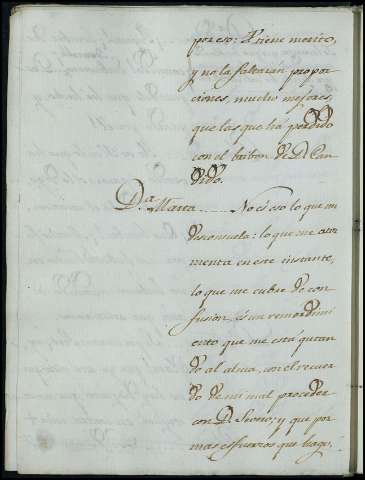 por eso: tiene merito,
y no la faltarán propor-
ciones, mucho mejores,
que las que há perdido
con el bribon de Dn. Can-
dido.
Da. Marta ..... No es eso lo que me
desconsuela: lo que me ator-
menta en este instante,
lo que me cubre de con-
fusion, es un remordimi-
ento que me está quitan-
do al alma, con el recuer-
do de mi mal proceder
con D.; y que por
mas esfuerzos que hago,